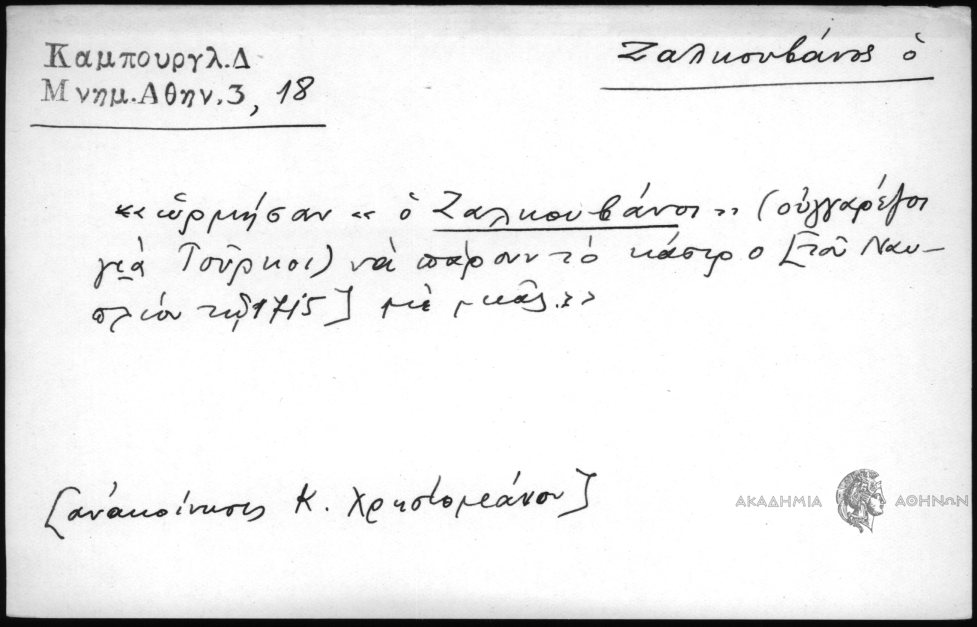 Καμπουργλ.Δ
Μνημ.Αθην.3, 18
Ζαλκουβάνος ὁ
«ὡρμήσαν « ὁ Ζαλκουβάνοι » (οὑγγαρέζοι
γιὰ Τοῦρκοι) νὰ πάρουν τὸ κάστρο [τοῦ Ναυ-
πλίου τῷ 1715] μὲ μᾶς.»
[ἀνακοίνωσις Κ. Χρηστομάνου]
ΑΚΑΔΗΜΙΑ ΑΘΗΝΩΝ